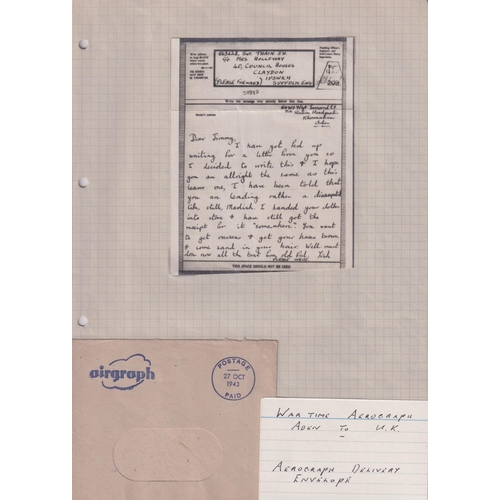 SGT TRAIN J.H.
C/o MRS HOLLOWAY
COUNCIL HOUSES
CLAYDON
IPSWICH
(PLEASE FORWARD) SUFFOLK ENG
Write the message very plainly below this line.
Aden
Dear Jimmy,
I have got fed up
waiting for a letter from you so
I decided to write this & I hope
you are allright the same as this
leaves me, I have been told that
you are leading rather a
life, still, I handed your clothes
into store & have still got the
receipt for it "somewhere". You want
to get overseas & get your knees brown
& some sand in your hair. Well must
close now all the best from old Pal,
PLEASE WRITE
THIS SPACE SHOULD NOT BE USED
airgraph
POSTAGE
27 OCT
1943
PAID
WAR TIME AEROGRAPH
ADEN TO U.K.
-
AEROGRAPH DELIVERY
ENVELOPE